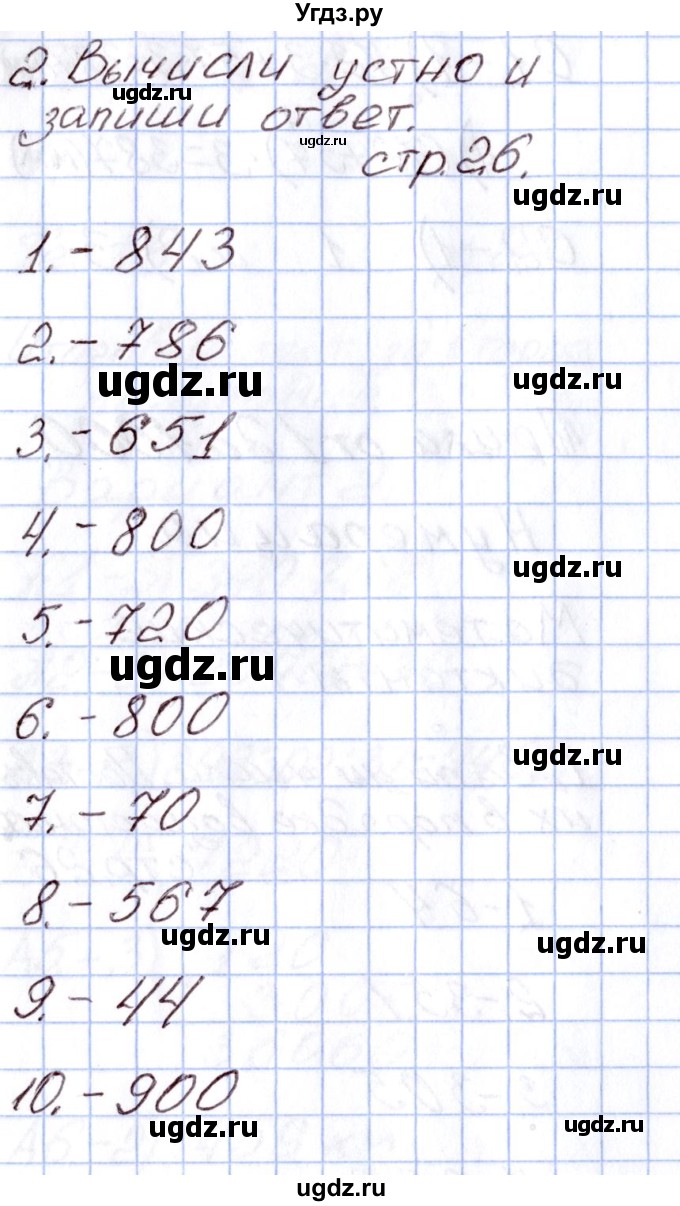 Угдз.ру
2. Вычисли устно и
ugdz.ru
запиши ответ.
ugdz.ru
стр. 26.
ugdz.ru
1. - 843
2. - 786
ugdz.ru
ugdz.ru
3. - 651
4. - 800
ugdz.ru
5. - 720
ugdz.ru
6. - 800
ugdz.ru
7. - 70
8. - 567
ugdz.ru
ugdz.ru
9. - 44
10. - 900
ugdz.ru
ugdz.ru
ugdz.ru